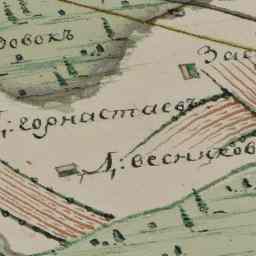 довокъ
Зас
Д: горнастаевъ
Д: весняков